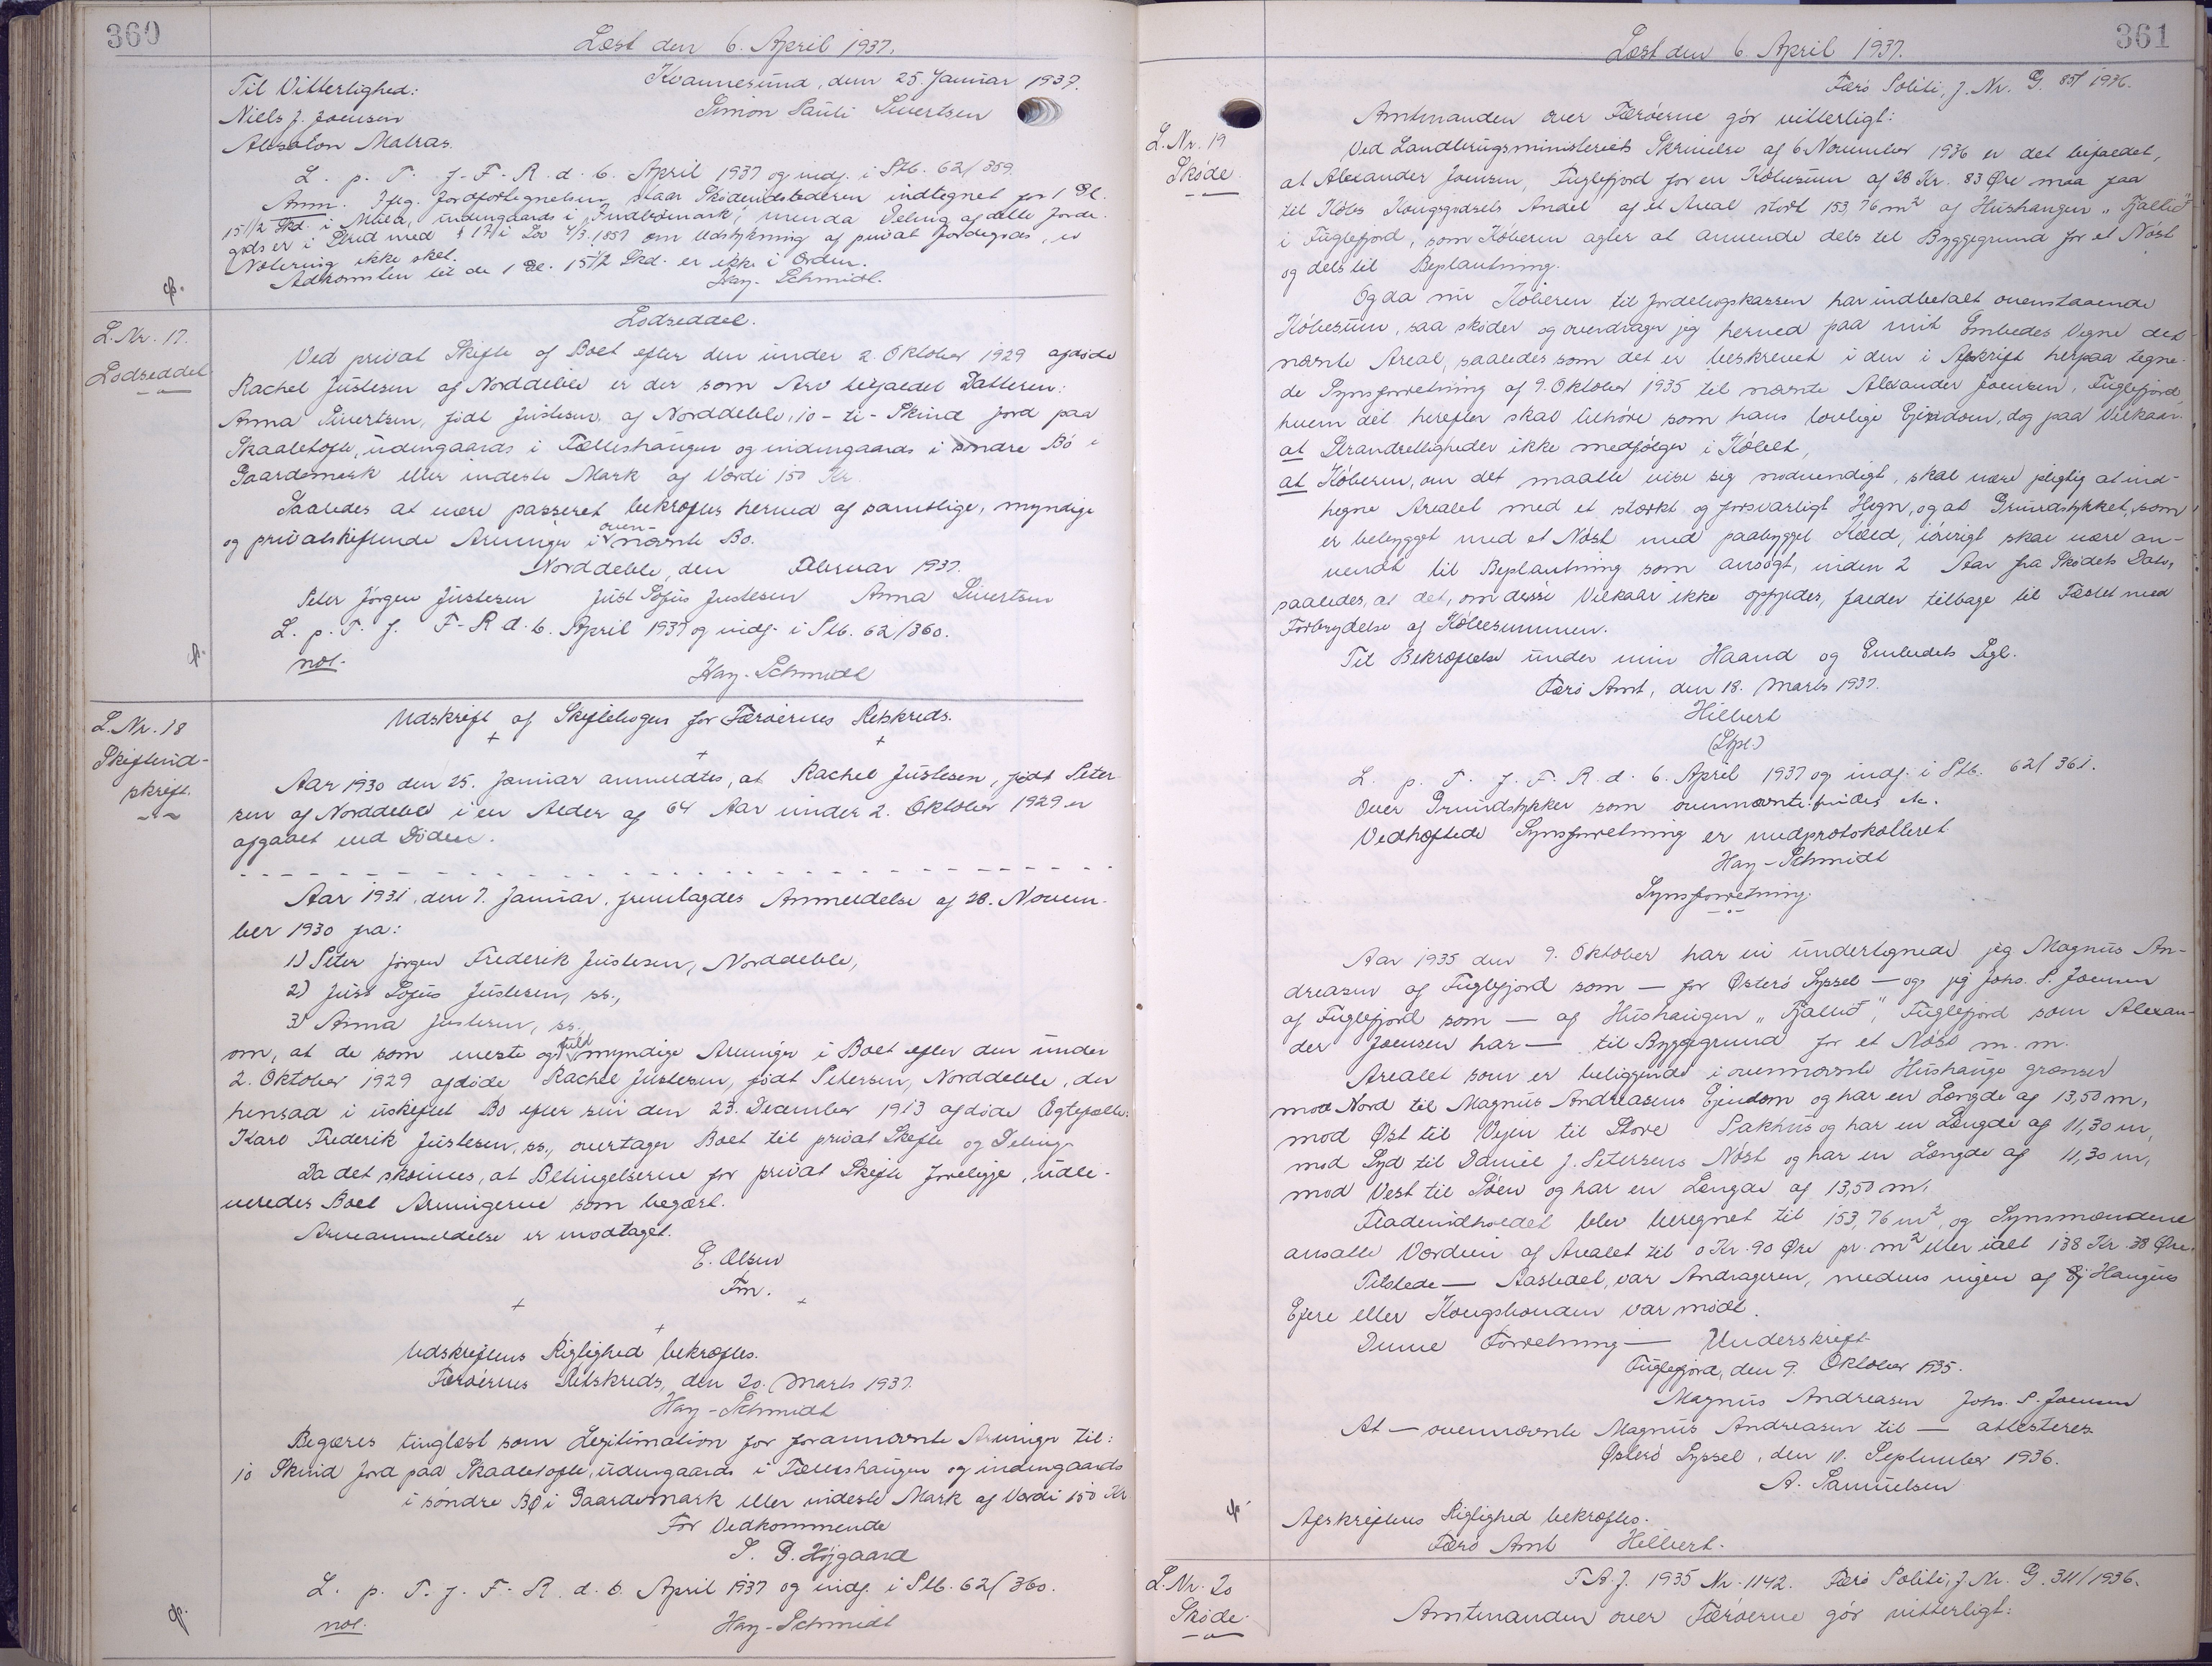 360
Læst den 6. April 1937.
Kvannesund, den 25. Januar 1937.
Til Vitterlighed:
Simon Pauli Sivertsen
Niels J. Joensen
Absalon Matras.
L. p. T. f. F. R. d. 6. April 1937 og indf. i Sth. 62/359.
Anm. Iflg. Jordfortegnelsen staar Skødeudstederen indtegnet for 1 Gl.
15 1/2 Skd. i Mula, udengaards i "Indbømark", men da Deling af dette Jorde-
gods er i Strid med § 17 i Lov 4/3 1857 om Udstykning af privat Jordegods, er
Notering ikke sket.
Adkomsten til de 1 Gl. 15 1/2 Skd. er ikke i Orden.
Hay-Schmidt.
L. Nr. 17.
Lodseddel
Lodseddel.
Ved privat Skifte af Boet efter den under 2. Oktober 1929 afdøde
Rachel Justesen af Norddeble er der som Arv tilfaldet Datteren:
Anna Sivertsen, født Justesen, af Norddeble, 10 - ti - Skind Jord paa
Skaaletofte, udengaards i Fælleshaugen og indengaards i søndre Bø i
Gaardsmark eller inderste Mark af Værdi 150 Kr.
Saaledes at være passeret bekræftes herved af samtlige, myndige
og privatskiftende Arvinger i oven-nævnte Bo.
Norddeble, den Februar 1937.
Peter Jørgen Justesen Just Sofus Justesen Anna Sivertsen
L. p. T. f. F-R d. 6. April 1937 og indf. i Stb. 62/360.
not.
Hay-Schmidt
L. Nr. 18
Skifteud-
skrift.
Udskrift af Skiftebogen for Færøernes Retskreds.
Aar 1930 den 25. Januar anmeldtes, at Rachel Justesen, født Peter-
sen af Norddeble i en Alder af 64 Aar under 2. Oktober 1929 er
afgaaet ved Døden.
Aar 1931, den 7. Januar, fremlagdes Anmeldelse af 28. Novem-
ber 1930 fra:
1) Peter Jørgen Frederik Justesen, Norddeble,
2) Just Sofus Justesen, ss.,
3) Anna Justesen, ss.
om, at de som eneste og fuldmyndige Arvinger i Boet efter den under
2. Oktober 1929 afdøde Rachel Justesen, født Petersen, Norddeble, der
hensad i uskiftet Bo efter sin den 23. December 1913 afdøde Ægtefælle:
Karl Frederik Justesen, ss., overtager Boet til privat Skifte og Deling.
Da det skønnes, at Betingelserne for privat Skifte foreligge, udle-
veredes Boet Arvingerne som begært.
Arveanmeldelse er modtaget.
E. Olsen
Fm.
Udskriftens Rigtighed bekræftes.
Færøernes Retskreds, den 20. Marts 1937.
Hay-Schmidt
Begæres tinglæst som Legitimation for forannævnte Arvinger til:
10 Skind Jord paa Skaaletofte, udengaards i Fælleshaugen og indengaards
i søndre Bø i Gaardsmark eller inderste Mark af Værdi 150 Kr
For Vedkommende
S. P. Højgaard
L. p. T. f. F-R. d. 6. April 1937 og indf. i Stb. 62/360.
not.
Hay-Schmidt
361
Læst den 6. April 1937.
Færø Politi, J. Nr. G. 857 1936.
L. Nr. 19
Skøde.
Amtmanden over Færøerne gør vitterligt:
Ved Landbrugsministeriets Skrivelse af 6. November 1936 er det bifaldet,
at Alexander Joensen, Fuglefjord for en Købesum af 28 Kr. 83 Øre maa faa
til Købs Kongsgodsets Andel af et Areal stort 153,76 m² af Hushaugen "Fjallid"
i Fuglefjord, som Køberen agter at anvende dels til Byggegrund for et Nøst
og dels til Beplantning.
Og da nu Køberen til Jordebogskassen har indbetalt ovenstaaende
Købesum, saa skøder og overdrager jeg herved paa mit Embedes Vegne det
nævnte Areal, saaledes som det er beskrevet i den i Afskrift herpaa tegne-
de Synsforretning af 9. Oktober 1935 til nævnte Alexander Joensen, Fuglefjord,
hvem det herefter skal tilhøre som hans lovlige Ejendom, dog paa Vilkaar:
at Strandrettigheder ikke medfølger i Købet,
at Køberen, om det maatte vise sig nødvendigt, skal være pligtig at ind-
hegne Arealet med et stærkt og forsvarligt Hegn, og at Grundstykket, som
er bebygget med et Nøst med paabygget Kæld, iøvrigt skal være an-
vendt til Beplantning som ansøgt, inden 2 Aar fra Skødets Dato,
saaledes, at det, om disse Vilkaar ikke opfyldes, falder tilbage til Fæstet med
Forbrydelse af Købesummen.
Til Bekræftelse under min Haand og Embedets Segl.
Færø Amt, den 18. Marts 1937.
Hilbert
(Stpl.)
L. p. T. f. F. R. d. 6. April 1937 og indf. i Stb. 62/361.
Over Grundstykker som ovennævnte findes etc.
Vedhæftede Synsforretning er medprotokolleret
Hay-Schmidt
Synsforretning.
Aar 1935 den 9. Oktober har vi undertegnede jeg Magnus An-
dreasen af Fuglefjord som — for Østerø Syssel — og jeg Johs. P. Joensen
af Fuglefjord som — af Hushaugen "Fjallid", Fuglefjord som Alexan-
der Joensen har — til Byggegrund for et Nøst m.m.
Arealet som er beliggende i ovennævnte Hushauge grænser
mod Nord til Magnus Andreasens Ejendom og har en Længde af 13,50 m,
mod Øst til Vejen til Store Pakhus og har en Længde af 11,30 m,
mod Syd til Daniel J. Petersens Nøst og har en Længde af 11,30 m,
mod Vest til Søen og har en Længde af 13,50 m.
Fladeindholdet blev beregnet til 153,76 m², og Synsmændene
ansatte Værdien af Arealet til 0 Kr. 90 Øre pr. m² eller ialt 138 Kr. 38 Øre.
Tilstede — Aastedet, var Andrageren, medens ingen af Haugens
Ejere eller Kongsbonden var mødt.
Denne Forretning — Underskrift.
Fuglefjord, den 9. Oktober 1935.
Magnus Andreasen Johs. P. Joensen
At — ovennævnte Magnus Andreasen til — attesteres
Østerø Syssel, den 10. September 1936.
A. Samuelsen
Afskriftens Rigtighed bekræftes.
Færø Amt Hilbert.
L. Nr. 20
Skøde.
T. A. J. 1935 Nr. 1142. Færø Politi, J. Nr. G. 311/1936.
Amtmanden over Færøerne gør vitterligt: